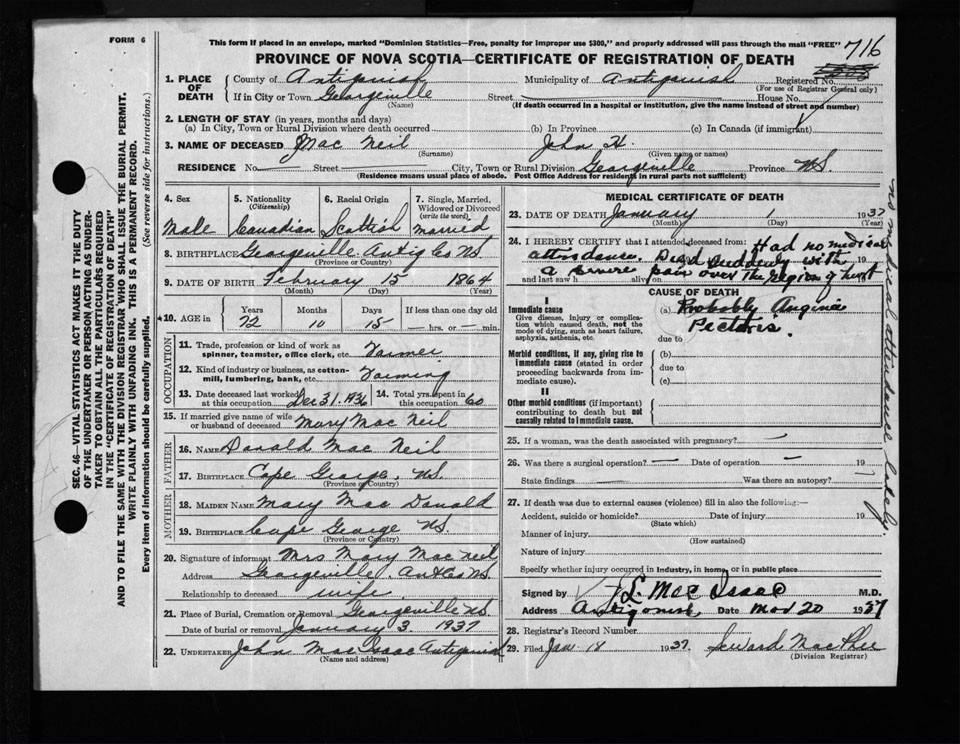 FORM 6
This form if placed in an envelope, marked "Dominion Statistics—Free, penalty for improper use $300," and properly addressed will pass through the mail "FREE"
716
PROVINCE OF NOVA SCOTIA—CERTIFICATE OF REGISTRATION OF DEATH
1. PLACE OF DEATH
County of Antigonish Municipality of Antigonish Registered No.
(For use of Registrar General only)
If in City or Town Georgeville Street House No.
(Name) (If death occurred in a hospital or institution, give the name instead of street and number)
2. LENGTH OF STAY (in years, months and days)
(a) In City, Town or Rural Division where death occurred (b) In Province (c) In Canada (if immigrant)
3. NAME OF DECEASED Mac Neil John H.
(Surname) (Given name or names)
RESIDENCE No. Street City, Town or Rural Division Georgeville Province NS.
(Residence means usual place of abode. Post Office Address for residents in rural parts not sufficient)
4. Sex 5. Nationality (Citizenship) 6. Racial Origin 7. Single, Married, Widowed or Divorced (write the word)
Male Canadian Scottish married
8. BIRTHPLACE Georgeville Antig Co NS
(Province or Country)
9. DATE OF BIRTH February 15 1864
(Month) (Day) (Year)
10. AGE in Years Months Days If less than one day
72 10 15 hrs. or min.
OCCUPATION
11. Trade, profession or kind of work as spinner, teamster, office clerk, etc. Farmer
12. Kind of industry or business, as cotton-mill, lumbering, bank, etc. Farming
13. Date deceased last worked at this occupation Dec 31. 1936 14. Total yrs. spent in this occupation 60
15. If married give name of wife or husband of deceased Mary Mac Neil
FATHER
16. NAME Donald Mac Neil
17. BIRTHPLACE Cape George, NS.
(Province or Country)
MOTHER
18. MAIDEN NAME Mary Mac Donald
19. BIRTHPLACE Cape George NS.
(Province or Country)
20. Signature of informant Mrs Mary Mac Neil
Address Georgeville, Ant Co NS.
Relationship to deceased wife
21. Place of Burial, Cremation or Removal Georgeville NS.
Date of burial or removal January 3. 1937
22. UNDERTAKER John Mac Isaac Antigonish
(Name and address)
MEDICAL CERTIFICATE OF DEATH
23. DATE OF DEATH January 1 1937
(Month) (Day) (Year)
24. I HEREBY CERTIFY that I attended deceased from: Had no medical
attendance. Died suddenly with
and last saw h alive on a severe pain over the region of heart
CAUSE OF DEATH
I
Immediate cause
Give disease, injury or complication which caused death, not the mode of dying, such as heart failure, asphyxia, asthenia, etc.
(a) Probably Angina
Pectoris.
due to
Morbid conditions, if any, giving rise to immediate cause (stated in order proceeding backwards from immediate cause).
(b)
due to
(c)
II
Other morbid conditions (if important) contributing to death but not causally related to immediate cause.
25. If a woman, was the death associated with pregnancy?
26. Was there a surgical operation? Date of operation 19
State findings Was there an autopsy?
27. If death was due to external causes (violence) fill in also the following:—
Accident, suicide or homicide? Date of injury 19
(State which)
Manner of injury
(How sustained)
Nature of injury
Specify whether injury occurred in industry, in home, or in public place
Signed by J.L. Mac Isaac M.D.
Address Antigonish Date Mar 20 1937
28. Registrar's Record Number
29. Filed Jan 18 1937. Seward Mac Phee
(Division Registrar)
no medical attendance lately.
SEC. 46—VITAL STATISTICS ACT MAKES IT THE DUTY
OF THE UNDERTAKER OR PERSON ACTING AS UNDER-
TAKER TO OBTAIN ALL THE PARTICULARS REQUIRED
IN THE "CERTIFICATE OF REGISTRATION OF DEATH"
AND TO FILE THE SAME WITH THE DIVISION REGISTRAR WHO SHALL ISSUE THE BURIAL PERMIT.
WRITE PLAINLY WITH UNFADING INK. THIS IS A PERMANENT RECORD.
Every item of information should be carefully supplied. (See reverse side for instructions.)